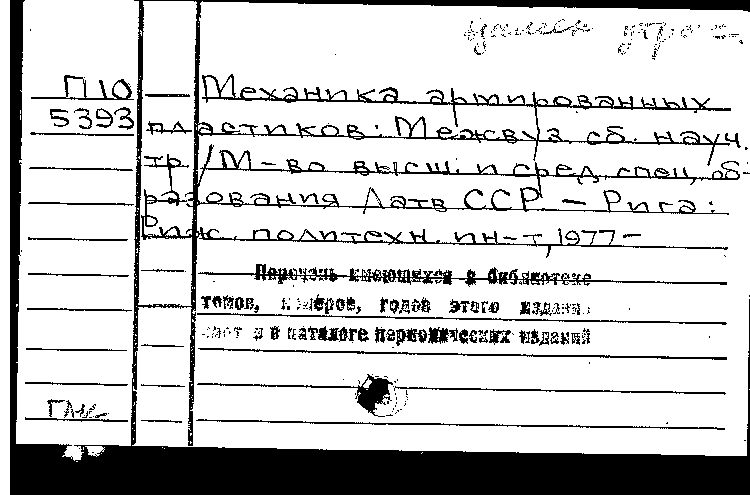 П10 Механика армированных
5393 пластиков: Межвуз. сб. науч.
тр. / М-во высш. и сред. спец. об-
разования Латв ССР. – Рига:
Риж. политехн. ин-т, 1977 –
Перечень имеющихся в библиотеке
томов, номеров, годов этого издания
в каталоге периодических изданий